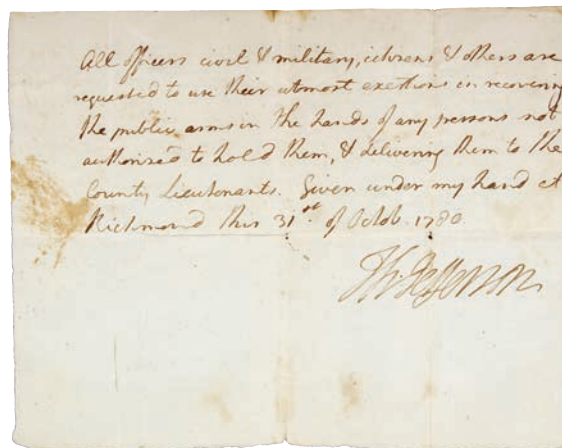 All officers civil & military, citizens & others are
requested to use their utmost exertions in recovering
the public arms in the hands of any persons not
authorised to hold them, & delivering them to the
County Lieutenants. Given under my hand at
Richmond this 31st of Octob. 1780
Th: Jefferson